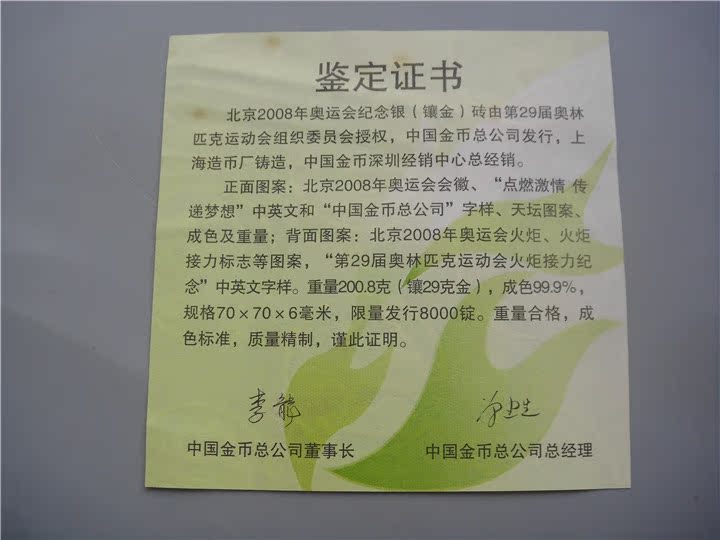 鉴定证书
北京2008年奥运会纪念银（镶金）砖由第29届奥林
匹克运动会组织委员会授权，中国金币总公司发行，上
海造币厂铸造，中国金币深圳经销中心总经销。
正面图案：北京2008年奥运会会徽、“点燃激情 传
递梦想”中英文和“中国金币总公司”字样、天坛图案、
成色及重量；背面图案：北京2008年奥运会火炬、火炬
接力标志等图案，“第29届奥林匹克运动会火炬接力纪
念”中英文字样。重量200.8克（镶29克金），成色99.9%，
规格70×70×6毫米，限量发行8000锭。重量合格，成
色标准，质量精制，谨此证明。
中国金币总公司董事长
中国金币总公司总经理